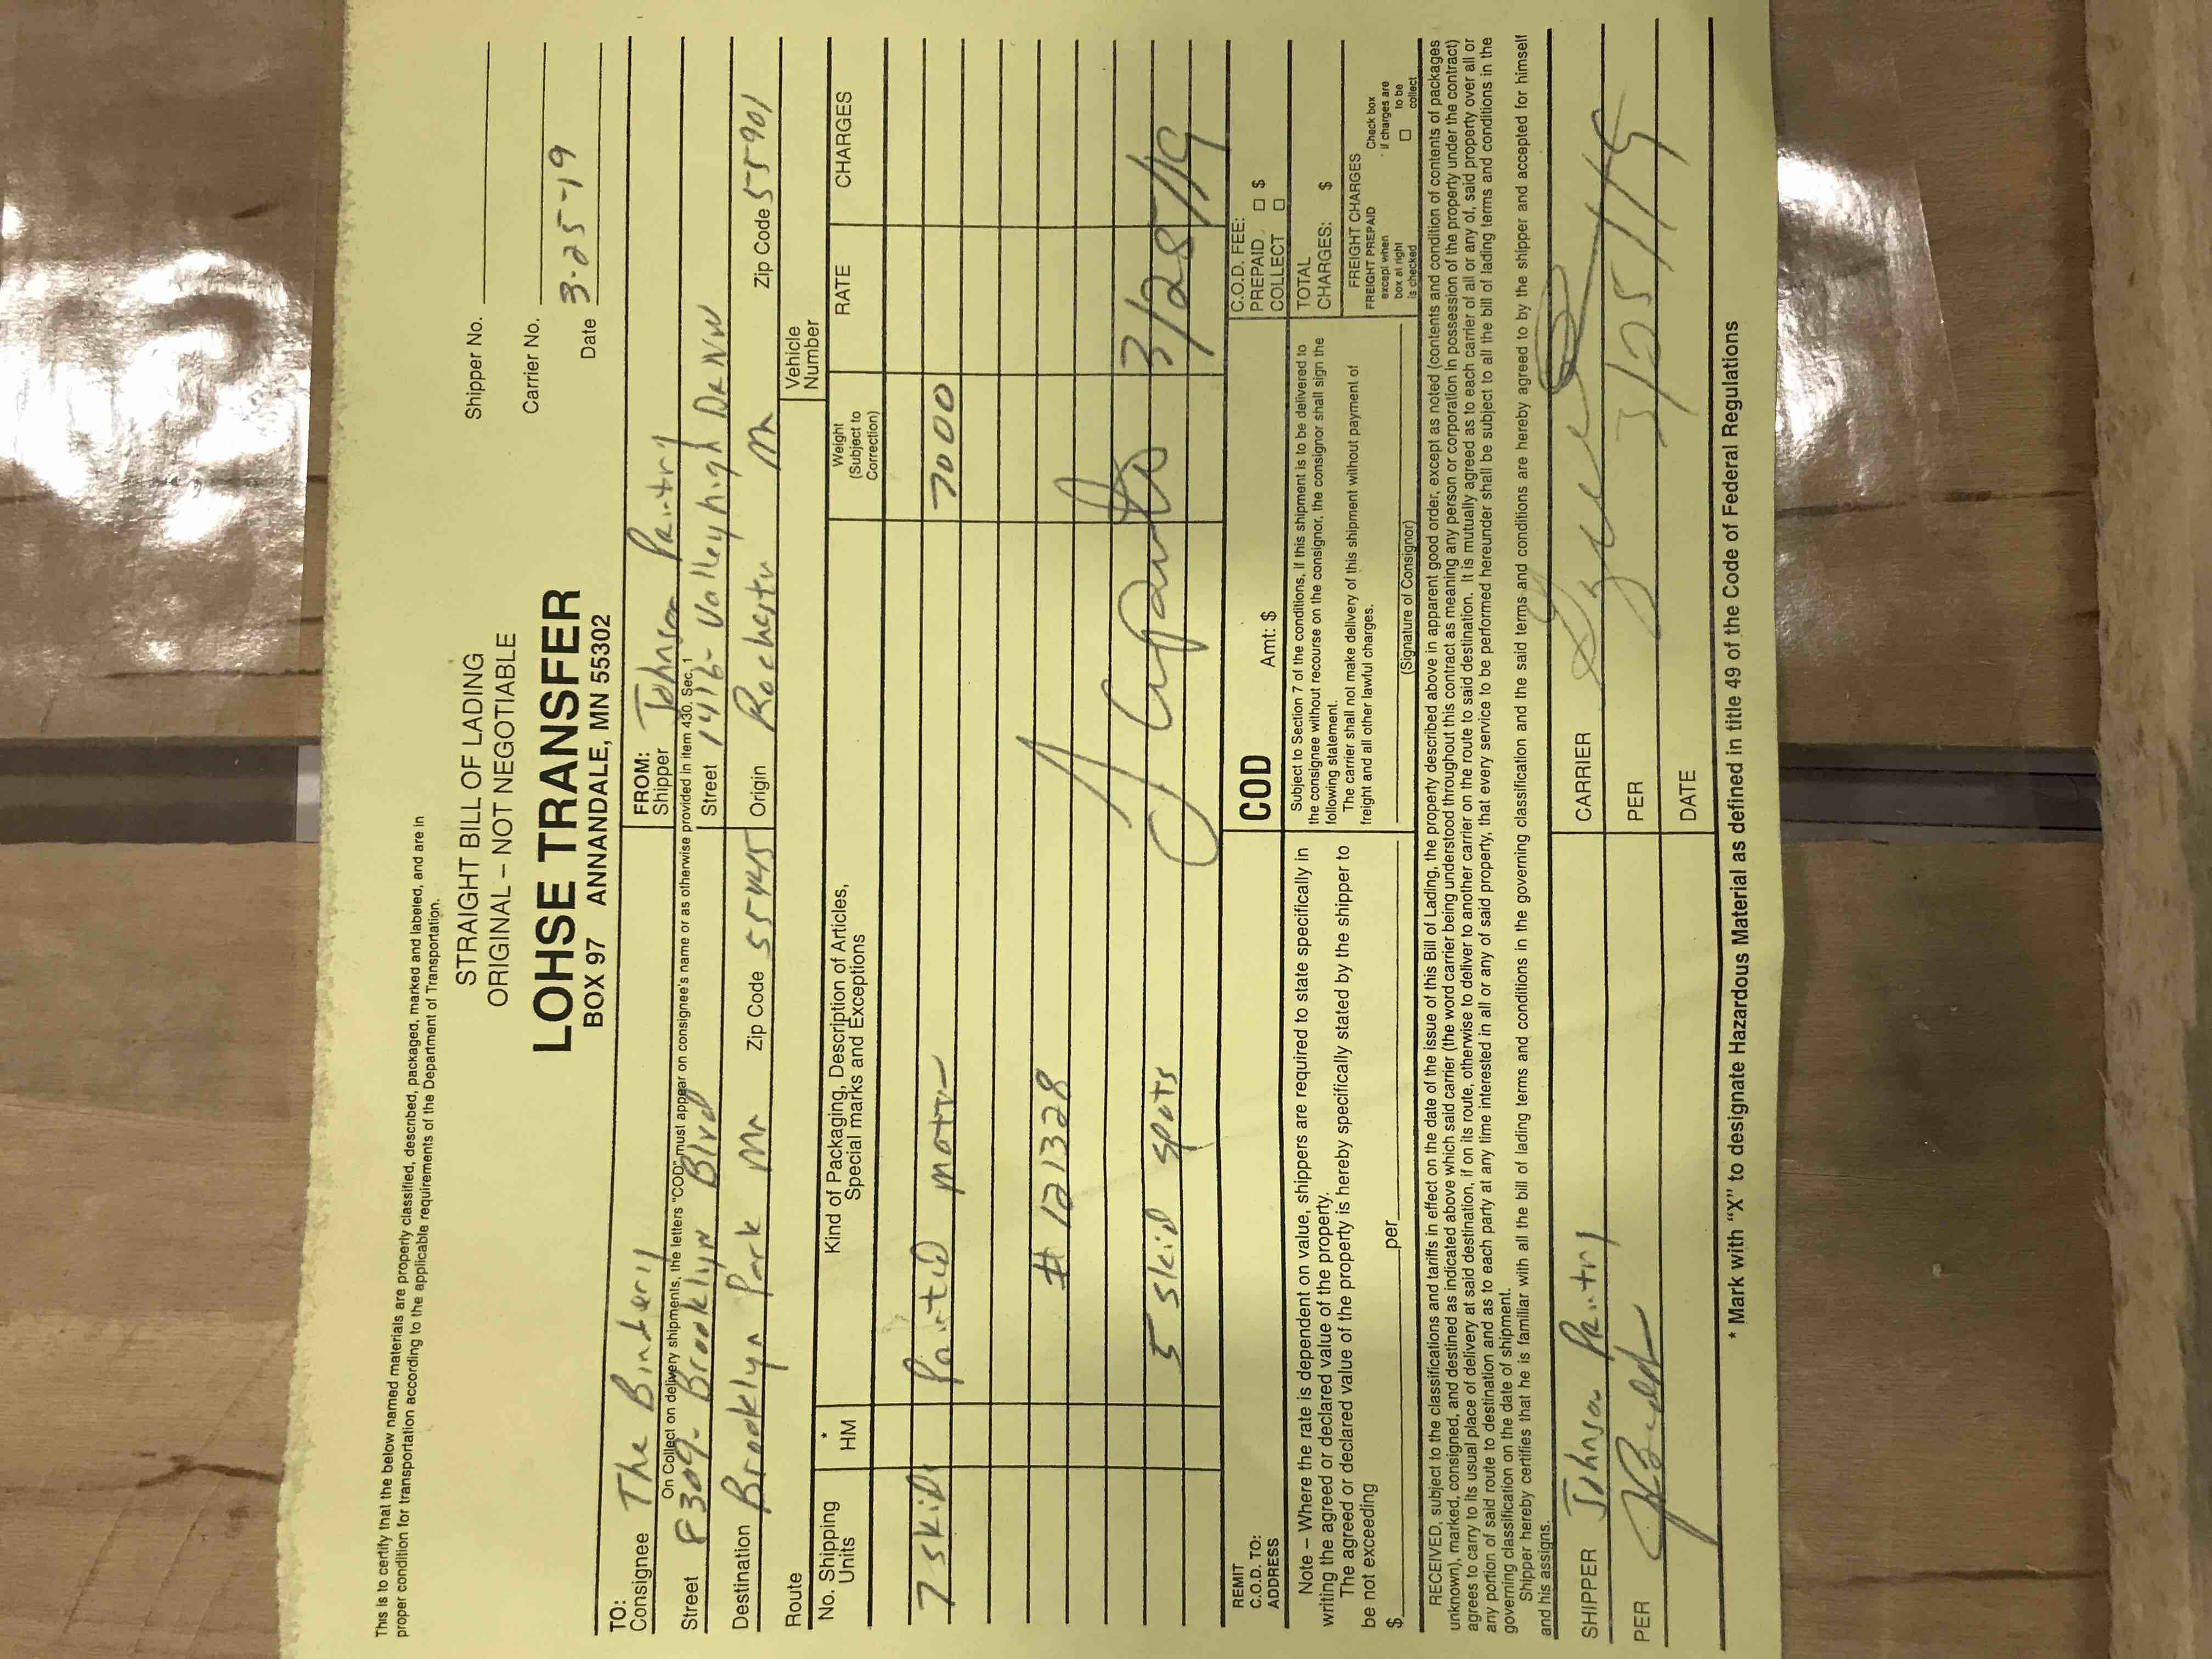 This is to certify that the below named materials are properly classified, described, packaged, marked and labeled, and are in
proper condition for transportation according to the applicable requirements of the Department of Transportation.
STRAIGHT BILL OF LADING
ORIGINAL – NOT NEGOTIABLE
Shipper No.
LOHSE TRANSFER
Carrier No.
BOX 97 ANNANDALE, MN 55302
Date 3-25-19
TO:
Consignee The Bindery
FROM:
Shipper Johnson
On Collect on delivery shipments, the letters "COD" must appear on consignee's name or as otherwise provided in item 430, Sec. 1
Street 8309- Brooklyn Blvd
Street 1416- Valleyhigh Dr NW
Destination Brooklyn Park Mn Zip Code 55445
Origin Rochester Mn Zip Code 55901
Route
Vehicle
Number
No. Shipping
Units
*
HM
Kind of Packaging, Description of Articles,
Special marks and Exceptions
Weight
(Subject to
Correction)
RATE
CHARGES
7 skids Printed 7000
# 121328
5 skid spots 3/25/19
REMIT
C.O.D. TO:
ADDRESS
COD Amt: $
C.O.D. FEE:
PREPAID ☐ $
COLLECT ☐
Note – Where the rate is dependent on value, shippers are required to state specifically in
writing the agreed or declared value of the property.
The agreed or declared value of the property is hereby specifically stated by the shipper to
be not exceeding
$ per
Subject to Section 7 of the conditions, if this shipment is to be delivered to
the consignee without recourse on the consignor, the consignor shall sign the
following statement.
The carrier shall not make delivery of this shipment without payment of
freight and all other lawful charges.
(Signature of Consignor)
TOTAL
CHARGES: $
FREIGHT CHARGES
FREIGHT PREPAID
except when
box at right
is checked
Check box
if charges are
☐ to be
collect
RECEIVED, subject to the classifications and tariffs in effect on the date of the issue of this Bill of Lading, the property described above in apparent good order, except as noted (contents and condition of contents of packages
unknown), marked, consigned, and destined as indicated above which said carrier (the word carrier being understood throughout this contract as meaning any person or corporation in possession of the property under the contract)
agrees to carry to its usual place of delivery at said destination, if on its route, otherwise to deliver to another carrier on the route to said destination. It is mutually agreed as to each carrier of all or any of, said property over all or
any portion of said route to destination and as to each party at any time interested in all or any of said property, that every service to be performed hereunder shall be subject to all the bill of lading terms and conditions in the
governing classification on the date of shipment.
Shipper hereby certifies that he is familiar with all the bill of lading terms and conditions in the governing classification and the said terms and conditions are hereby agreed to by the shipper and accepted for himself
and his assigns.
SHIPPER Johnson
CARRIER
PER
PER 3/25/19
DATE
* Mark with "X" to designate Hazardous Material as defined in title 49 of the Code of Federal Regulations